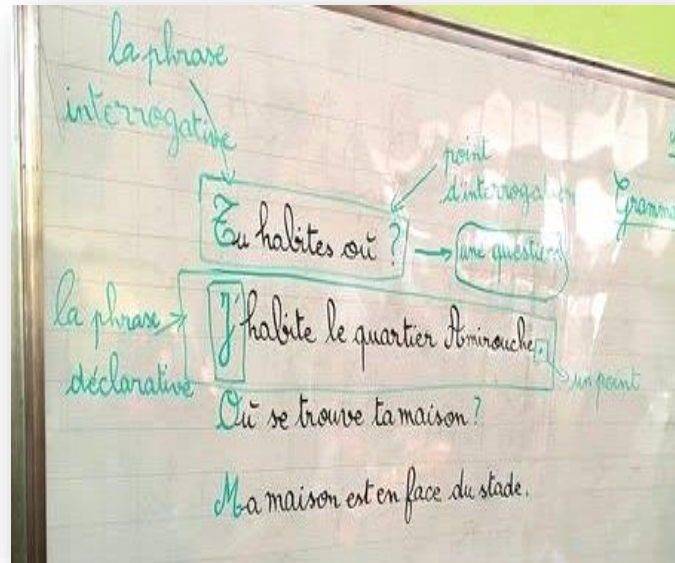 la phrase
interrogative
point
d'interrogation
Gramma
Tu habites où ? → une question
la phrase
déclarative
J'habite le quartier Amirouche.
un point
Où se trouve ta maison ?
Ma maison est en face du stade.